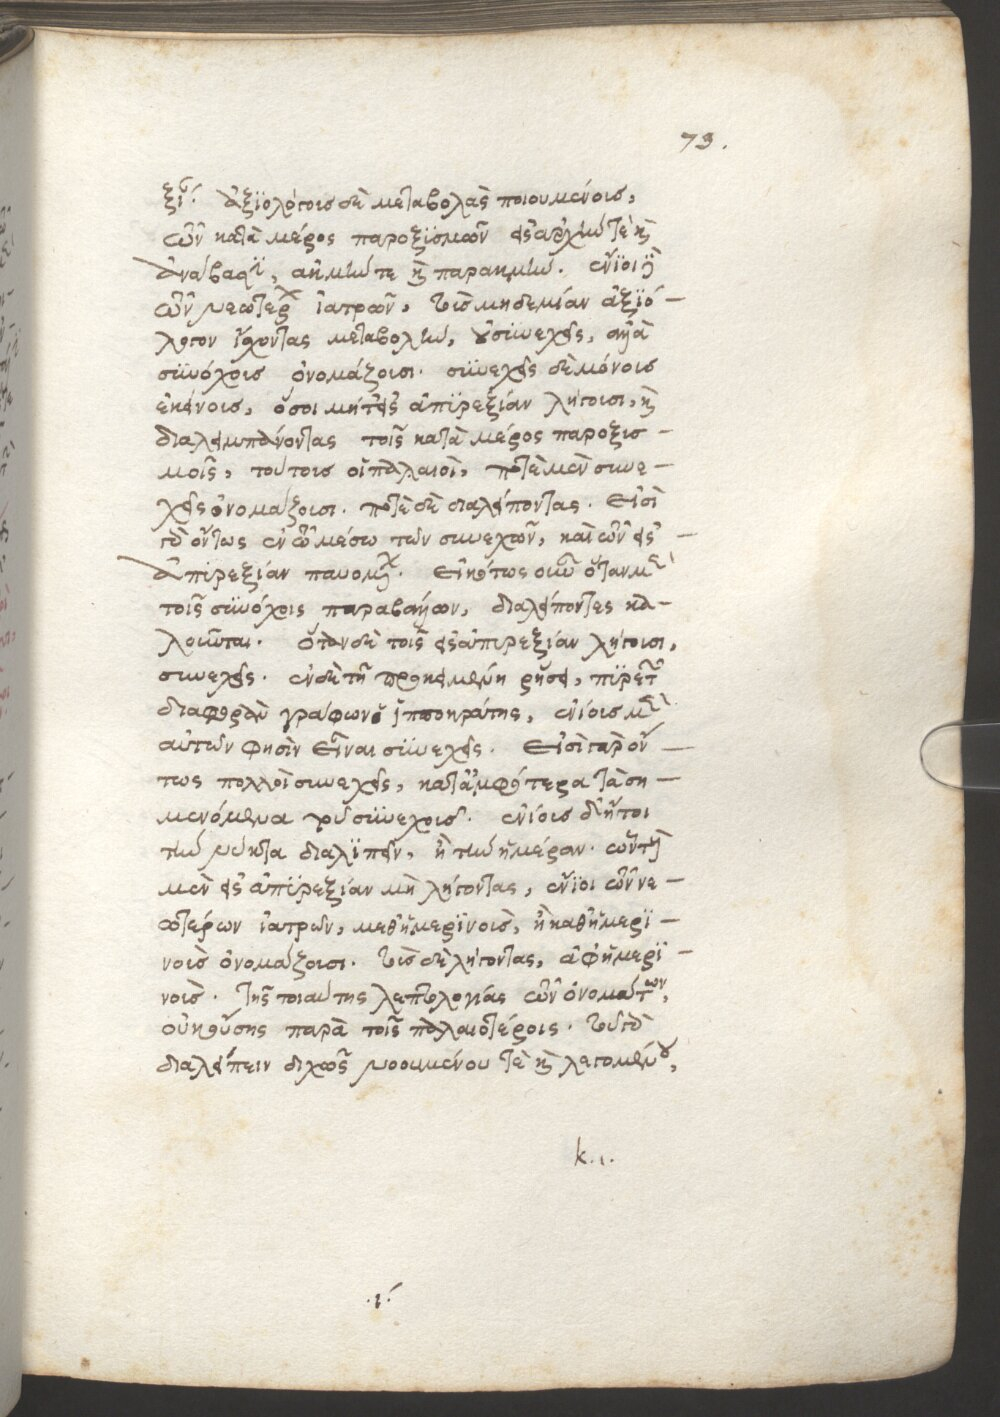 73.
ξιν· ἀξιολόγοις δὲ μεταβολὰς ποιουμένοις,
τῶν κατὰ μέρος παροξϊσμῶν εἰς ἀρχήν τὲ καὶ
ἀνάβασϊν, ἀκμήν τε καὶ παρακμήν. ἔνϊοι δὲ
τῶν νεωτέρων ἰατρῶν, τοὺς μηδεμίαν ἀξϊό-
λογον ἴσχοντας μεταβολὴν, οὐ σϋνεχεῖς, ἀλλὰ
σϋνόχους ὀνομάζουσι. σϋνεχεῖς δὲ μόνους
ἐκείνους, ὅσοι μήτ' εἰς ἀπϋρεξίαν λήγουσι, καὶ
διαλεμπάνοντας τοῖς κατὰ μέρος παροξισ-
μοῖς, τούτους οἱ παλαιοὶ, ποτὲ μὲν συνε-
χεῖς ὀνομάζουσι. ποτὲ δὲ διαλείποντας. Εἰσὶ
γὰρ ὄντως ἐν τῶ μέσω τῶν συνεχῶν, καὶ τῶν εἰς
ἀπϊρεξίαν παυομένων. Εἰκότως οὖν ὅταν μὲν
τοῖς σϋνόχοις παραβάλλων, διαλείποντες κα-
λοῦνται. ὅταν δὲ τοῖς εἰς ἀπιρεξίαν λήγουσι,
συνεχεῖς. ἐν δὲ τῆ προκειμένη ῥήσει, πϊρετῶν
διαφορὰν γράφων ὁ ἱπποκράτης, ἐνίους μὲν
αὐτῶν φησὶν εἶναι σϋνεχεῖς. Εἰσὶ γὰρ οὗ-
τως πολλοὶ συνεχεῖς, κατ' ἀμφότερα τὰ ση-
μενόμενα τοῦ σϋνεχοῦς. ἐνίους δ' ἤτοι
τὴν νύκτα διαλϊπεῖν, ἢ τὴν ἡμέραν.
μὲν εἰς ἀπϋρεξίαν μὴ λήγοντας, ἔνϊοι τῶν νε-
ωτέρων ἰατρῶν, μεθημερϊνοὺς, ἢ καθημερϊ-
νοὺς ὀνομάζουσι. τοὺς δὲ λήγοντας, ἀφημερϊ-
νούς. τῆς τοιαύτης λεπτολογίας τῶν ὀνομάτων,
οὐκ οὔσης παρὰ τοῖς παλαιοτέροις.
διαλείπειν διχῶς νοουμένου τὲ καὶ λεγομένου,
k.ι.
.ι.